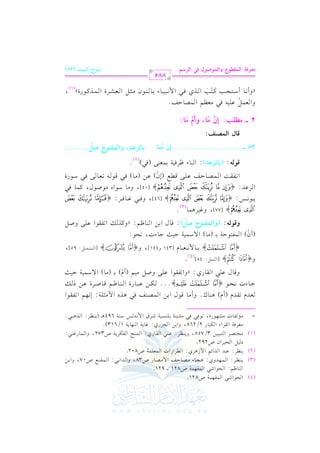 معرفة المقطوع والموصول في الرسم
بلوغ البيت ١٨٣
٥٨٨
«وأنـا أستحب كَتْبَ الذي في الأنبياء بـالنون مثل العشـرة المذكورة»(١)،
والعمل عليه في معظم المصاحف.
٢ - مطلب: إِنْ مَا، وَأَمْ مَا:
قال المصنف:
٨٢ ...................... إِنْ مَا بالرعد، والمفتوح صِلْ ............
قوله: (بالرعد): الباء ظرفية بمعنى (في)(٢).
اتفقت المصاحف على قطع (إِنْ) عن (ما) في قوله تعالى في سورة
الرعد: ﴿وَإِن مَّا نُرِيَنَّكَ بَعْضَ الَّذِي نَعِدُهُمْ﴾ (٤٠)، وما سواه موصول، كما في
يونس: ﴿وَإِمَّا نُرِيَنَّكَ بَعْضَ الَّذِي نَعِدُهُمْ﴾ (٤٦)، وفي غافر: ﴿فَإِمَّا نُرِيَنَّكَ بَعْضَ
الَّذِي نَعِدُهُمْ﴾ (٧٧)، وغيرهما(٣).
وقوله: (والمفتوح صل): قال ابن الناظم: «وكذلك اتفقوا على وصل
(أَنْ) المفتوحة بـ (ما) الاسمية حيث جاءت، نحو:
﴿أَمَّا اشْتَمَلَتْ﴾ بـالأنعـام (١٤٣ و١٤٤)، و﴿أَمَّا يُشْرِكُونَ﴾ [النمل: ٥٩]،
و﴿أَمَّاذَا كُنتُمْ﴾ [النمل: ٨٤]»(٤).
وقال علي القاري: «واتفقوا على وصل ميم (أَمْ) بـ (ما) الاسمية حيث
جاءت نحو ﴿أَمَّا اشْتَمَلَتْ عَلَيْهِ﴾ ... لكن عبارة الناظم قاصرة عن ذلك
لعدم تقدم (أَمْ) هناك. وأما قول ابن المصنف في هذه الأمثلة: إنهم اتفقوا
= مؤلفات مشهورة، توفي في مدينة بلنسية شرق الأندلس سنة ٤٩٦هـ. انظر: الذهبي:
معرفة القراء الكبار ٨٦٢/٢، وابن الجزري: غاية النهاية ٣١٦/١.
(١) مختصر التبيين ٥٥٧/٣، وينظر: علي القاري: المنح الفكرية ص٢٧٣، والمارغني:
دليل الحيران ص٢٩٢.
(٢) ينظر: عبد الدائم الأزهري: الطرازات المعلمة ص٢٠٨.
(٣) ينظر: المهدوي: هجاء مصاحف الأمصار ص٨٣، والداني: المقنع ص٧٠، وابن
الناظم: الحواشي المفهمة ص١٢٨ - ١٢٩.
(٤) الحواشي المفهمة ص١٢٨.